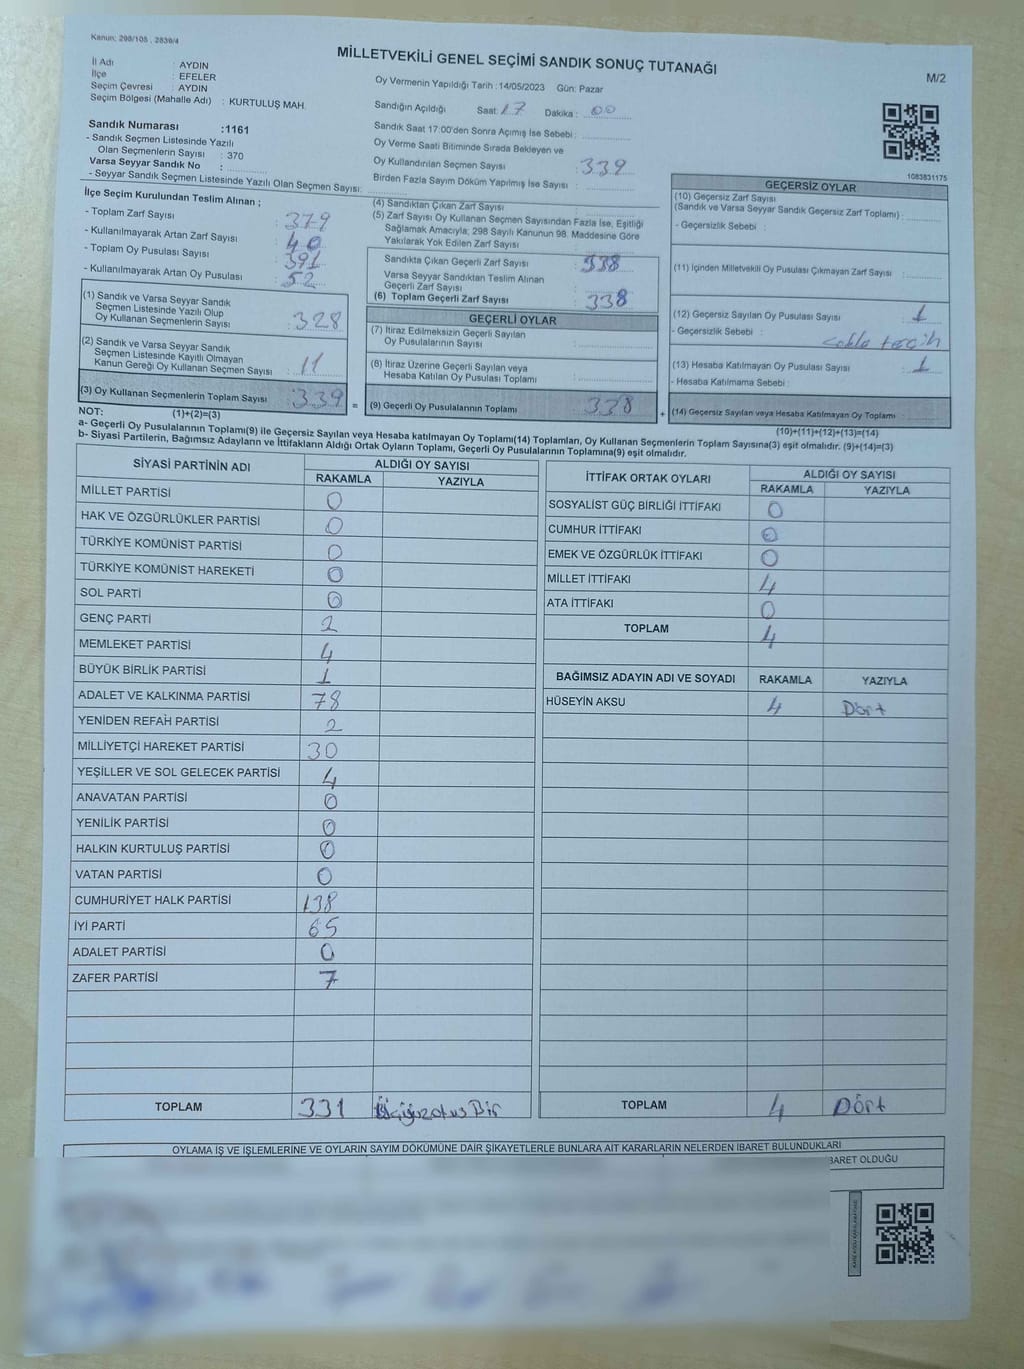 Kanun: 298/105 , 2839/4
MİLLETVEKİLİ GENEL SEÇİMİ SANDIK SONUÇ TUTANAĞI
M/2
İl Adı : AYDIN
İlçe : EFELER
Seçim Çevresi : AYDIN
Seçim Bölgesi (Mahalle Adı) : KURTULUŞ MAH.
Sandık Numarası :1161
- Sandık Seçmen Listesinde Yazılı
Olan Seçmenlerin Sayısı : 370
Varsa Seyyar Sandık No :
- Seyyar Sandık Seçmen Listesinde Yazılı Olan Seçmen Sayısı:
Oy Vermenin Yapıldığı Tarih : 14/05/2023 Gün: Pazar
Sandığın Açıldığı Saat: 17 Dakika : 00
Sandık Saat 17:00'den Sonra Açımış İse Sebebi :
Oy Verme Saati Bitiminde Sırada Bekleyen ve
Oy Kullandırılan Seçmen Sayısı : 339
Birden Fazla Sayım Döküm Yapılmış İse Sayısı :
1083831175
İlçe Seçim Kurulundan Teslim Alınan ;
- Toplam Zarf Sayısı : 379
- Kullanılmayarak Artan Zarf Sayısı : 40
- Toplam Oy Pusulası Sayısı : 391
- Kullanılmayarak Artan Oy Pusulası : 52
(1) Sandık ve Varsa Seyyar Sandık
Seçmen Listesinde Yazılı Olup
Oy Kullanan Seçmenlerin Sayısı : 328
(2) Sandık ve Varsa Seyyar Sandık
Seçmen Listesinde Kayıtlı Olmayan
Kanun Gereği Oy Kullanan Seçmen Sayısı : 11
(3) Oy Kullanan Seçmenlerin Toplam Sayısı : 339
(1)+(2)=(3)
(4) Sandıktan Çıkan Zarf Sayısı :
(5) Zarf Sayısı Oy Kullanan Seçmen Sayısından Fazla İse, Eşitliği
Sağlamak Amacıyla; 298 Sayılı Kanunun 98. Maddesine Göre
Yakılarak Yok Edilen Zarf Sayısı :
Sandıkta Çıkan Geçerli Zarf Sayısı : 338
Varsa Seyyar Sandıktan Teslim Alınan
Geçerli Zarf Sayısı :
(6) Toplam Geçerli Zarf Sayısı : 338
GEÇERLİ OYLAR
(7) İtiraz Edilmeksizin Geçerli Sayılan
Oy Pusulalarının Sayısı :
(8) İtiraz Üzerine Geçerli Sayılan veya
Hesaba Katılan Oy Pusulası Toplamı :
= (9) Geçerli Oy Pusulalarının Toplamı : 338 +
GEÇERSİZ OYLAR
(10) Geçersiz Zarf Sayısı
(Sandık ve Varsa Seyyar Sandık Geçersiz Zarf Toplamı) :
- Geçersizlik Sebebi :
(11) İçinden Milletvekili Oy Pusulası Çıkmayan Zarf Sayısı :
(12) Geçersiz Sayılan Oy Pusulası Sayısı : 1
- Geçersizlik Sebebi :
(13) Hesaba Katılmayan Oy Pusulası Sayısı : 1
- Hesaba Katılmama Sebebi :
(14) Geçersiz Sayılan veya Hesaba Katılmayan Oy Toplamı :
(10)+(11)+(12)+(13)=(14)
NOT:
a- Geçerli Oy Pusulalarının Toplamı(9) ile Geçersiz Sayılan veya Hesaba katılmayan Oy Toplamı(14) Toplamları, Oy Kullanan Seçmenlerin Toplam Sayısına(3) eşit olmalıdır. (9)+(14)=(3)
b- Siyasi Partilerin, Bağımsız Adayların ve İttifakların Aldığı Ortak Oyların Toplamı, Geçerli Oy Pusulalarının Toplamına(9) eşit olmalıdır.
SİYASİ PARTİNİN ADI ALDIĞI OY SAYISI
RAKAMLA YAZIYLA
MİLLET PARTİSİ 0
HAK VE ÖZGÜRLÜKLER PARTİSİ 0
TÜRKİYE KOMÜNİST PARTİSİ 0
TÜRKİYE KOMÜNİST HAREKETİ 0
SOL PARTİ 0
GENÇ PARTİ 2
MEMLEKET PARTİSİ 4
BÜYÜK BİRLİK PARTİSİ 1
ADALET VE KALKINMA PARTİSİ 78
YENİDEN REFAH PARTİSİ 2
MİLLİYETÇİ HAREKET PARTİSİ 30
YEŞİLLER VE SOL GELECEK PARTİSİ 4
ANAVATAN PARTİSİ 0
YENİLİK PARTİSİ 0
HALKIN KURTULUŞ PARTİSİ 0
VATAN PARTİSİ 0
CUMHURİYET HALK PARTİSİ 138
İYİ PARTİ 65
ADALET PARTİSİ 0
ZAFER PARTİSİ 7
TOPLAM 331
İTTİFAK ORTAK OYLARI ALDIĞI OY SAYISI
RAKAMLA YAZIYLA
SOSYALİST GÜÇ BİRLİĞİ İTTİFAKI 0
CUMHUR İTTİFAKI 0
EMEK VE ÖZGÜRLÜK İTTİFAKI 0
MİLLET İTTİFAKI 4
ATA İTTİFAKI 0
TOPLAM 4
BAĞIMSIZ ADAYIN ADI VE SOYADI RAKAMLA YAZIYLA
HÜSEYİN AKSU 4 Dört
TOPLAM 4 Dört
OYLAMA İŞ VE İŞLEMLERİNE VE OYLARIN SAYIM DÖKÜMÜNE DAİR ŞİKAYETLERLE BUNLARA AİT KARARLARIN NELERDEN İBARET BULUNDUKLARI
BARET OLDUĞU